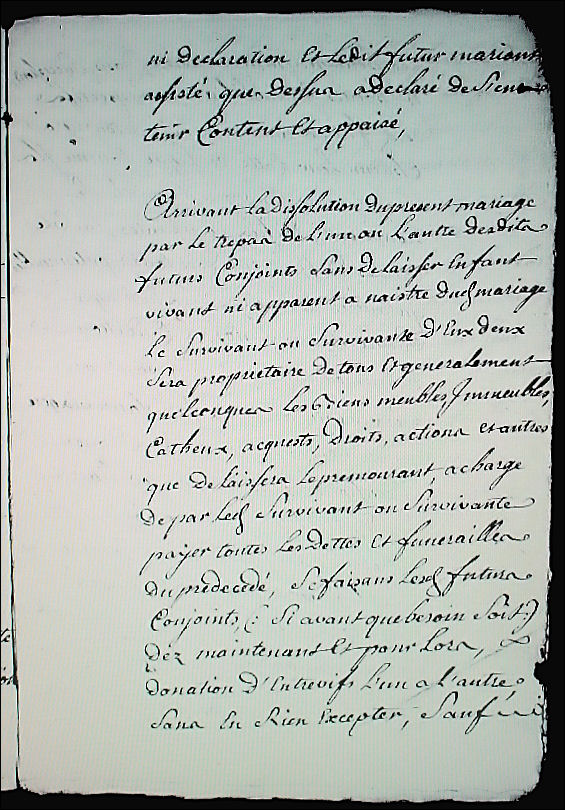 ni declaration Et Ledit futur mariant
assisté que dessus a declaré de S'en
tenir Content Et appaisé,
Arrivant La Dissolution Du present mariage
par Le trepas de L'un ou L'autre desdits
futurs Conjoints Sans De laisser Enfant
vivant ni apparent a naistre dud mariage
Le Survivant ou Survivante D'Eux deux
Sera proprietaire de tous Et generalement
quelconques Les Biens meubles Immeubles,
Catheux, acquests, Droits, actions et autres
que De laissera Le premourant, a charge
De par Led Survivant ou Survivante
payer toutes Les Dettes Et funerailles
Du predecedé, Se faisans Lesd futurs
Conjoints, (: Si avant que besoin Soit :)
Dez maintenant Et pour Lors,
donation D'Entrevifs L'un a L'autre
Sans En Rien Excepter, Sauf